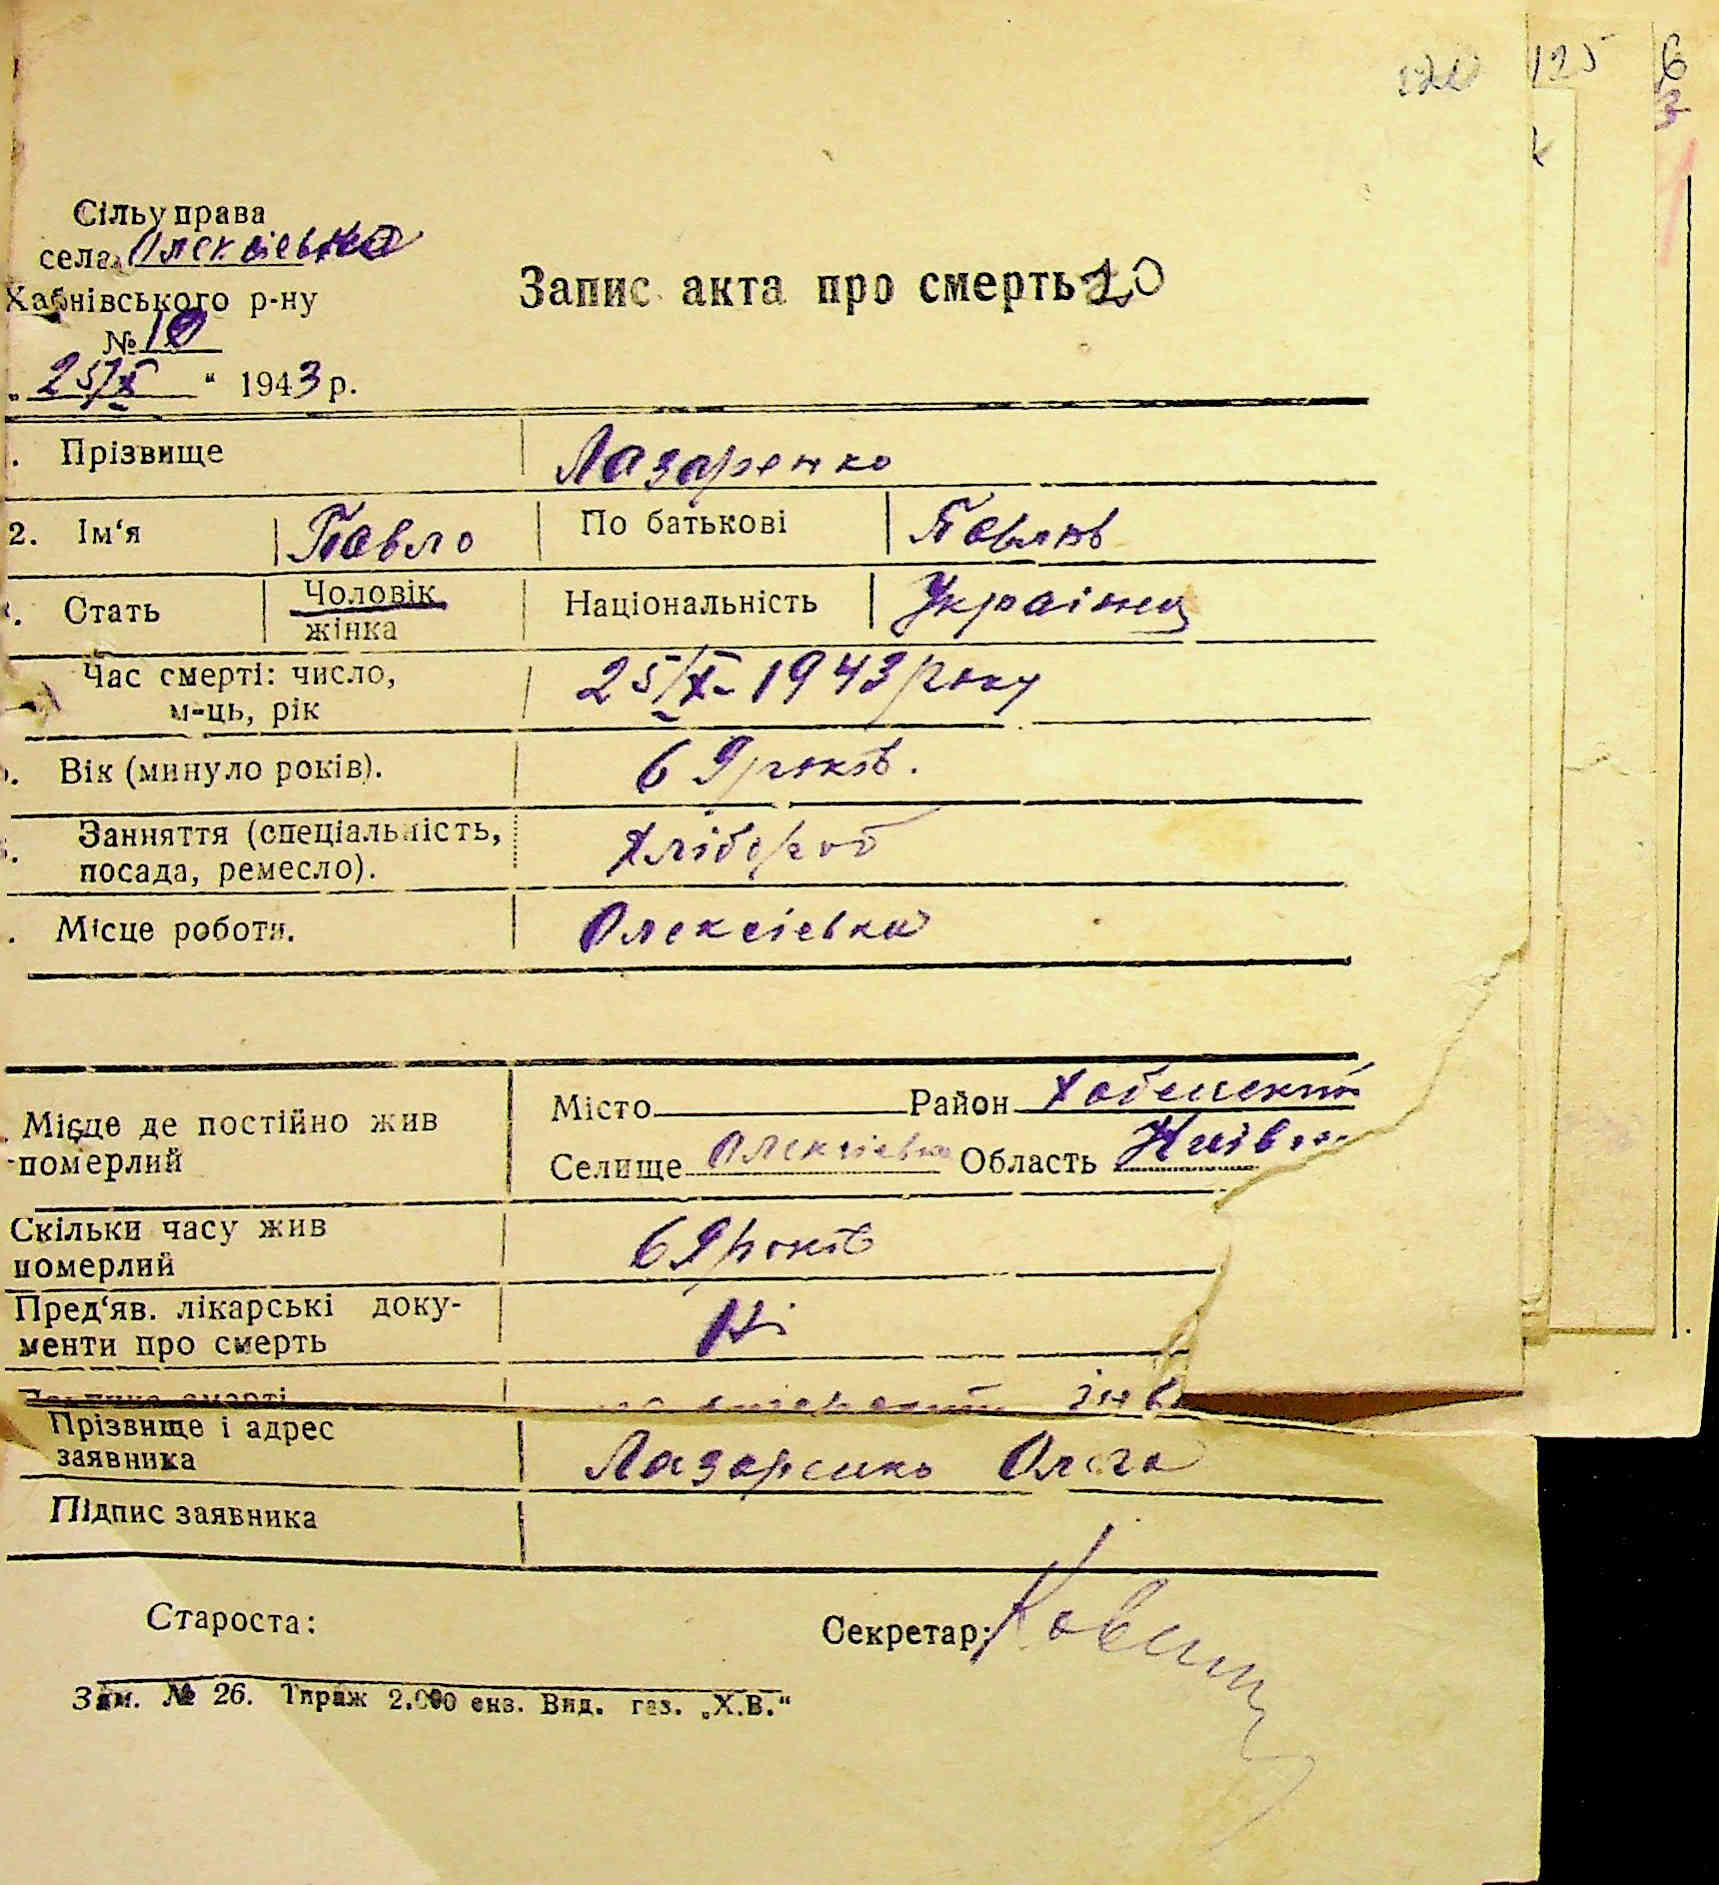 125
63
Сільуправа
села Олексіевка
Хабнівського р-ну
№ 10
„25/X“ 1943 р.
Запис акта про смерть 20
Прізвище Лазаренко
2. Ім‘я Павло По батькові Павлов
Стать Чоловік жінка Національність Украінец
Час смерті: число, м-ць, рік 25/X-1943 року
Вік (минуло років). 69 років.
Занняття (спеціальність, посада, ремесло). Хлібороб
Місце роботи. Олексіевка
Місце де постійно жив померлий Місто Район
Селище Олексіевка Область
Скільки часу жив померлий 69 років
Пред‘яв. лікарські документи про смерть Ні
смерті
Прізвище і адрес заявника Лазаренко Ольга
Підпис заявника
Староста: Секретар:
Зам. № 26. Тираж 2.000 екз. Вид. газ. „Х.В.“